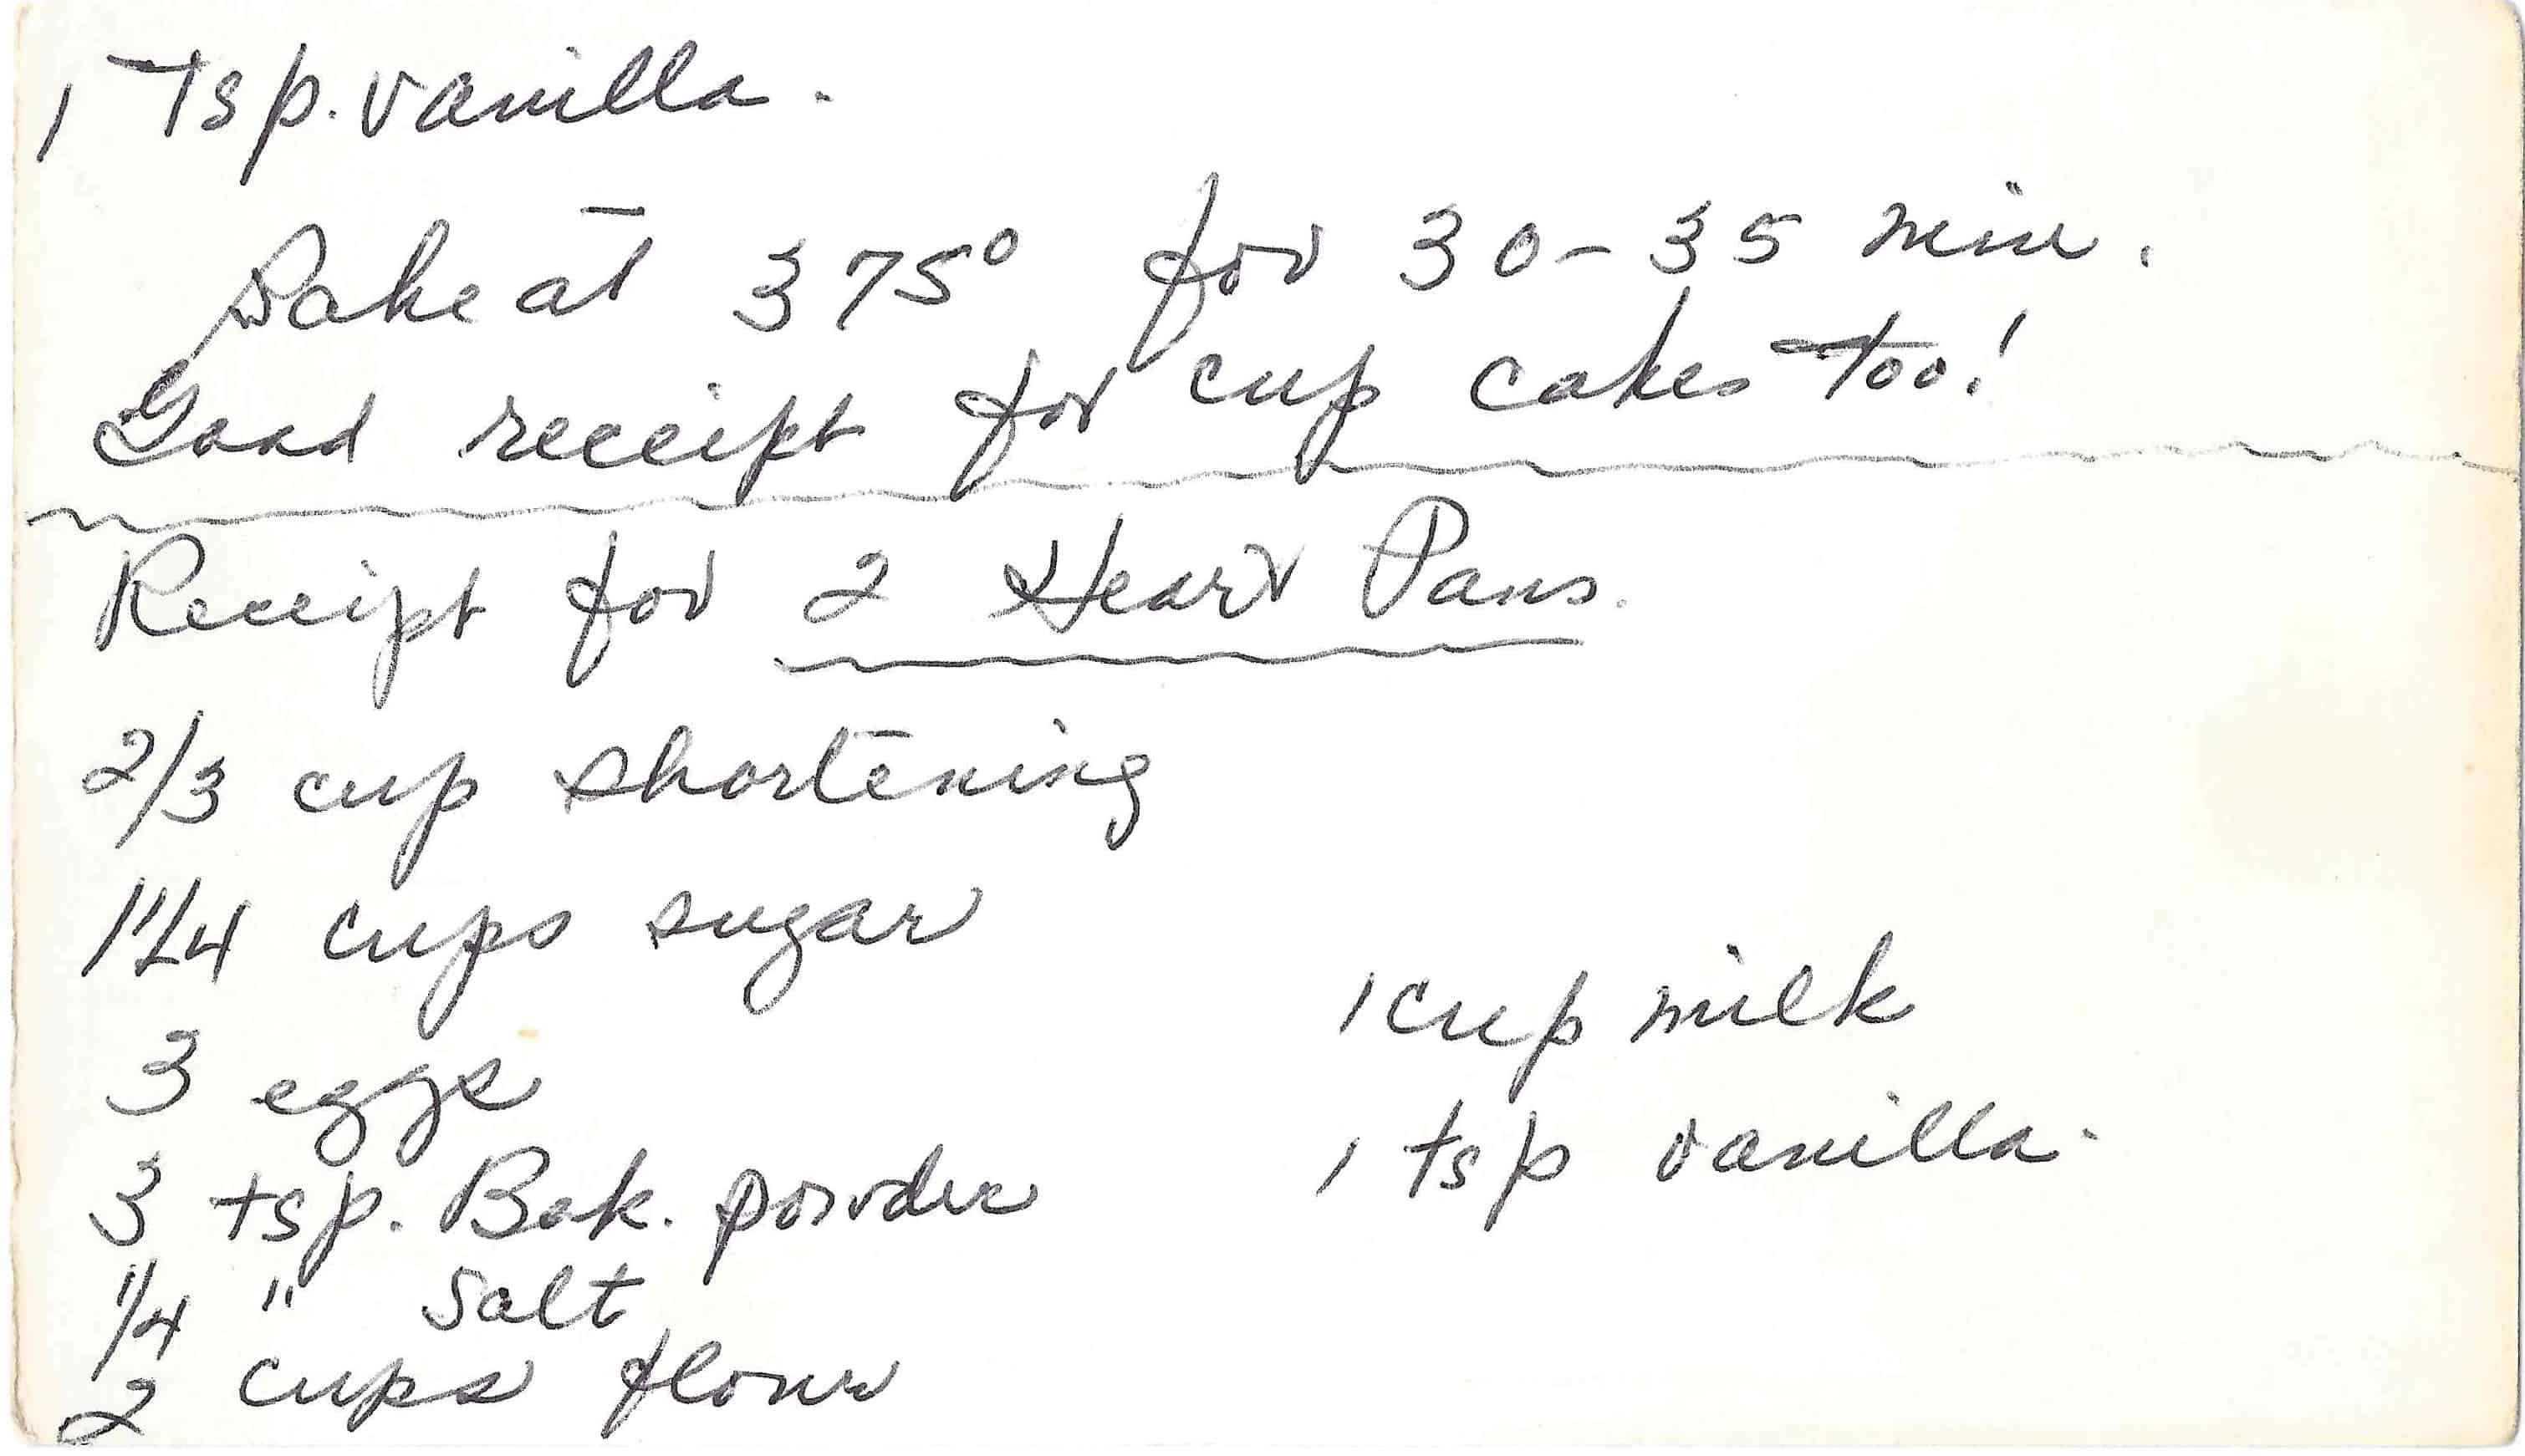 1 Tsp. vanilla.
Bake at 375° for 30-35 min.
Good receipt for cup cakes too!
Receipt for 2 Heart Pans.
2/3 cup shortening
1 1/4 cups sugar
3 eggs
3 tsp. Bak. powder
1/4 " Salt
2 cups flour
1 cup milk
1 tsp vanilla.